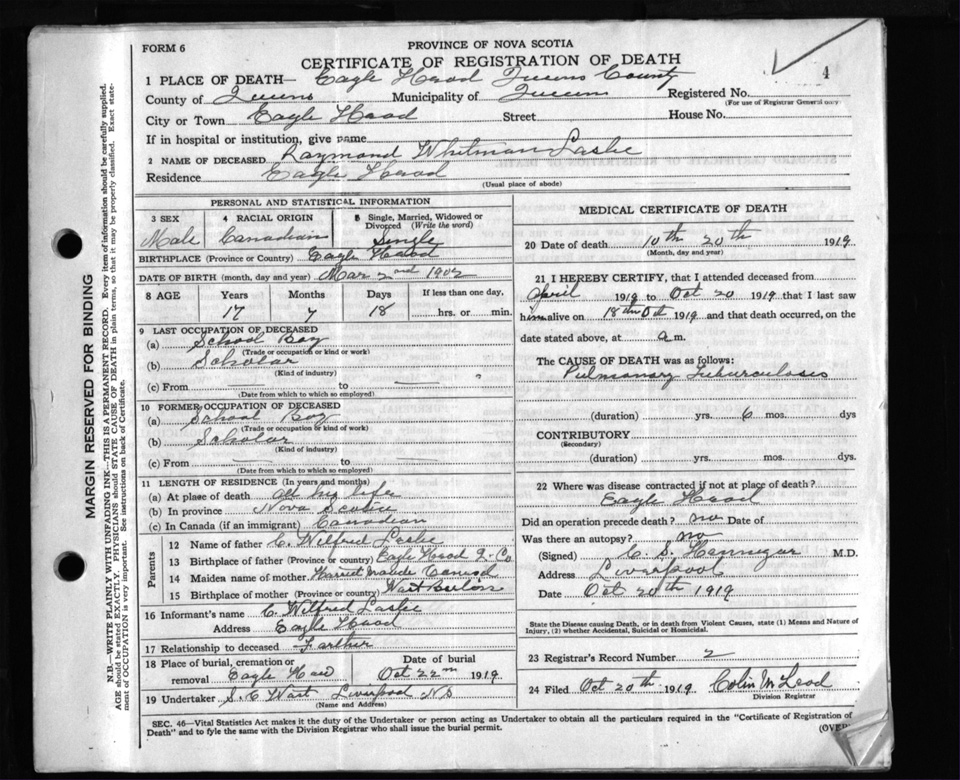 FORM 6
PROVINCE OF NOVA SCOTIA
CERTIFICATE OF REGISTRATION OF DEATH
4
1 PLACE OF DEATH— Eagle Head Queens County
County of Queens Municipality of Queens Registered No.
(For use of Registrar General only)
City or Town Eagle Head Street House No.
If in hospital or institution, give name
2 NAME OF DECEASED Raymond Whitman Leslie
Residence Eagle Head
(Usual place of abode)
PERSONAL AND STATISTICAL INFORMATION
3 SEX 4 RACIAL ORIGIN 5 Single, Married, Widowed or Divorced (Write the word)
Male Canadian Single
BIRTHPLACE (Province or Country) Eagle Head
DATE OF BIRTH (month, day and year) Mar 2nd 1902
8 AGE Years Months Days If less than one day,
17 7 18 hrs. or min.
9 LAST OCCUPATION OF DECEASED
(a) School Boy
(Trade or occupation or kind or work)
(b) Scholar
(Kind of industry)
(c) From to
(Date from which to which so employed)
10 FORMER OCCUPATION OF DECEASED
(a) School Boy
(Trade or occupation or kind of work)
(b) Scholar
(Kind of industry)
(c) From to
(Date from which to which so employed)
11 LENGTH OF RESIDENCE (In years and months)
(a) At place of death all his life
(b) In province Nova Scotia
(c) In Canada (if an immigrant) Canadian
Parents
12 Name of father C. Wilfred Leslie
13 Birthplace of father (Province or country) Eagle Head Q. Co
14 Maiden name of mother Harriet Maude
15 Birthplace of mother (Province or country) West Berlin
16 Informant's name C. Wilfred Leslie
Address Eagle Head
17 Relationship to deceased Farther
18 Place of burial, cremation or removal Eagle Head
Date of burial Oct 22nd 1919
19 Undertaker S. C. Liverpool N.S
(Name and Address)
MEDICAL CERTIFICATE OF DEATH
20 Date of death 10th 20th 1919
(Month, day and year)
21 I HEREBY CERTIFY, that I attended deceased from
April 1919 to Oct 20 1919 that I last saw
him alive on 18th Oct 1919 and that death occurred, on the
date stated above, at a m.
The CAUSE OF DEATH was as follows:
Pulmonary Tuburculosis
(duration) yrs. 6 mos. dys
CONTRIBUTORY
(Secondary)
(duration) yrs. mos. dys.
22 Where was disease contracted if not at place of death?
Eagle Head
Did an operation precede death? no Date of
Was there an autopsy? no
(Signed) C. S. Hennigar M.D.
Address Liverpool
Date Oct 20th 1919
State the Disease causing Death, or in Death from Violent Causes, state (1) Means and Nature of
Injury, (2) whether Accidental, Suicidal or Homicidal.
23 Registrar's Record Number 2
24 Filed Oct 20th 1919 Colin McLeod
Division Registrar
SEC. 46—Vital Statistics Act makes it the duty of the Undertaker or person acting as Undertaker to obtain all the particulars required in the "Certificate of Registration of
Death" and to fyle the same with the Division Registrar who shall issue the burial permit.
(OVER)
MARGIN RESERVED FOR BINDING
N.B.—WRITE PLAINLY WITH UNFADING INK—THIS IS A PERMANENT RECORD. Every item of information should be carefully supplied.
AGE should be stated EXACTLY. PHYSICIANS should STATE CAUSE OF DEATH in plain terms, so that it may be properly classified. Exact statement of OCCUPATION is very important. See instructions on back of Certificate.